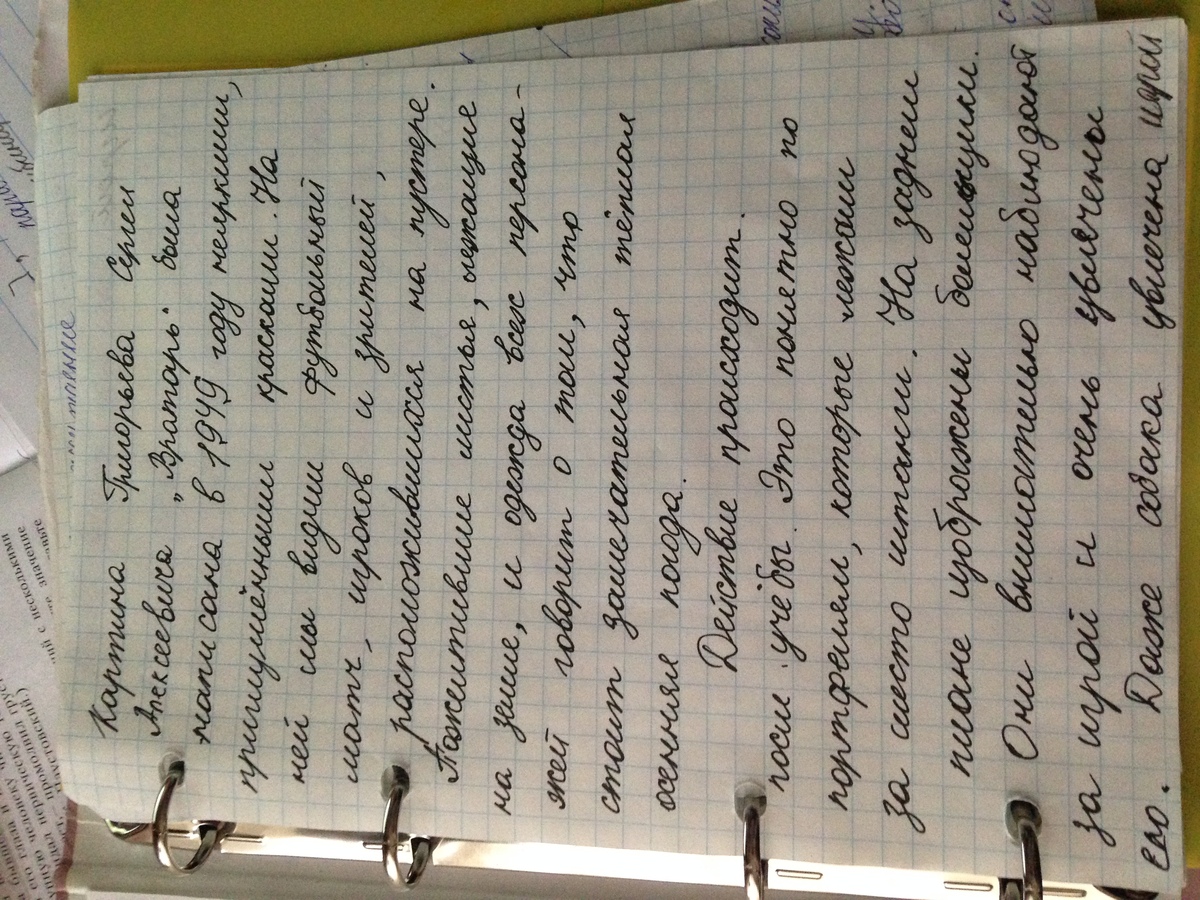 Картина Григорьева Сергея
Алексеевича „Вратарь" была
написана в 1949 году неяркими,
приглушёнными красками. На
ней мы видим футбольный
матч, игроков и зрителей,
расположившихся на пустере.
Пожелтившие листья, лежащие
на земле, и одежда всех персона-
жей говорит о том, что
стоит замечательная тёплая
осенняя погода.
Действие происходит
после учёбы. Это понятно по
портфелям, которые лежат
за место штанги. На заднем
плане изображены болельщики.
Они внимательно наблюдают
за игрой и очень увлечены
ею. Даже собака увлечена игрой